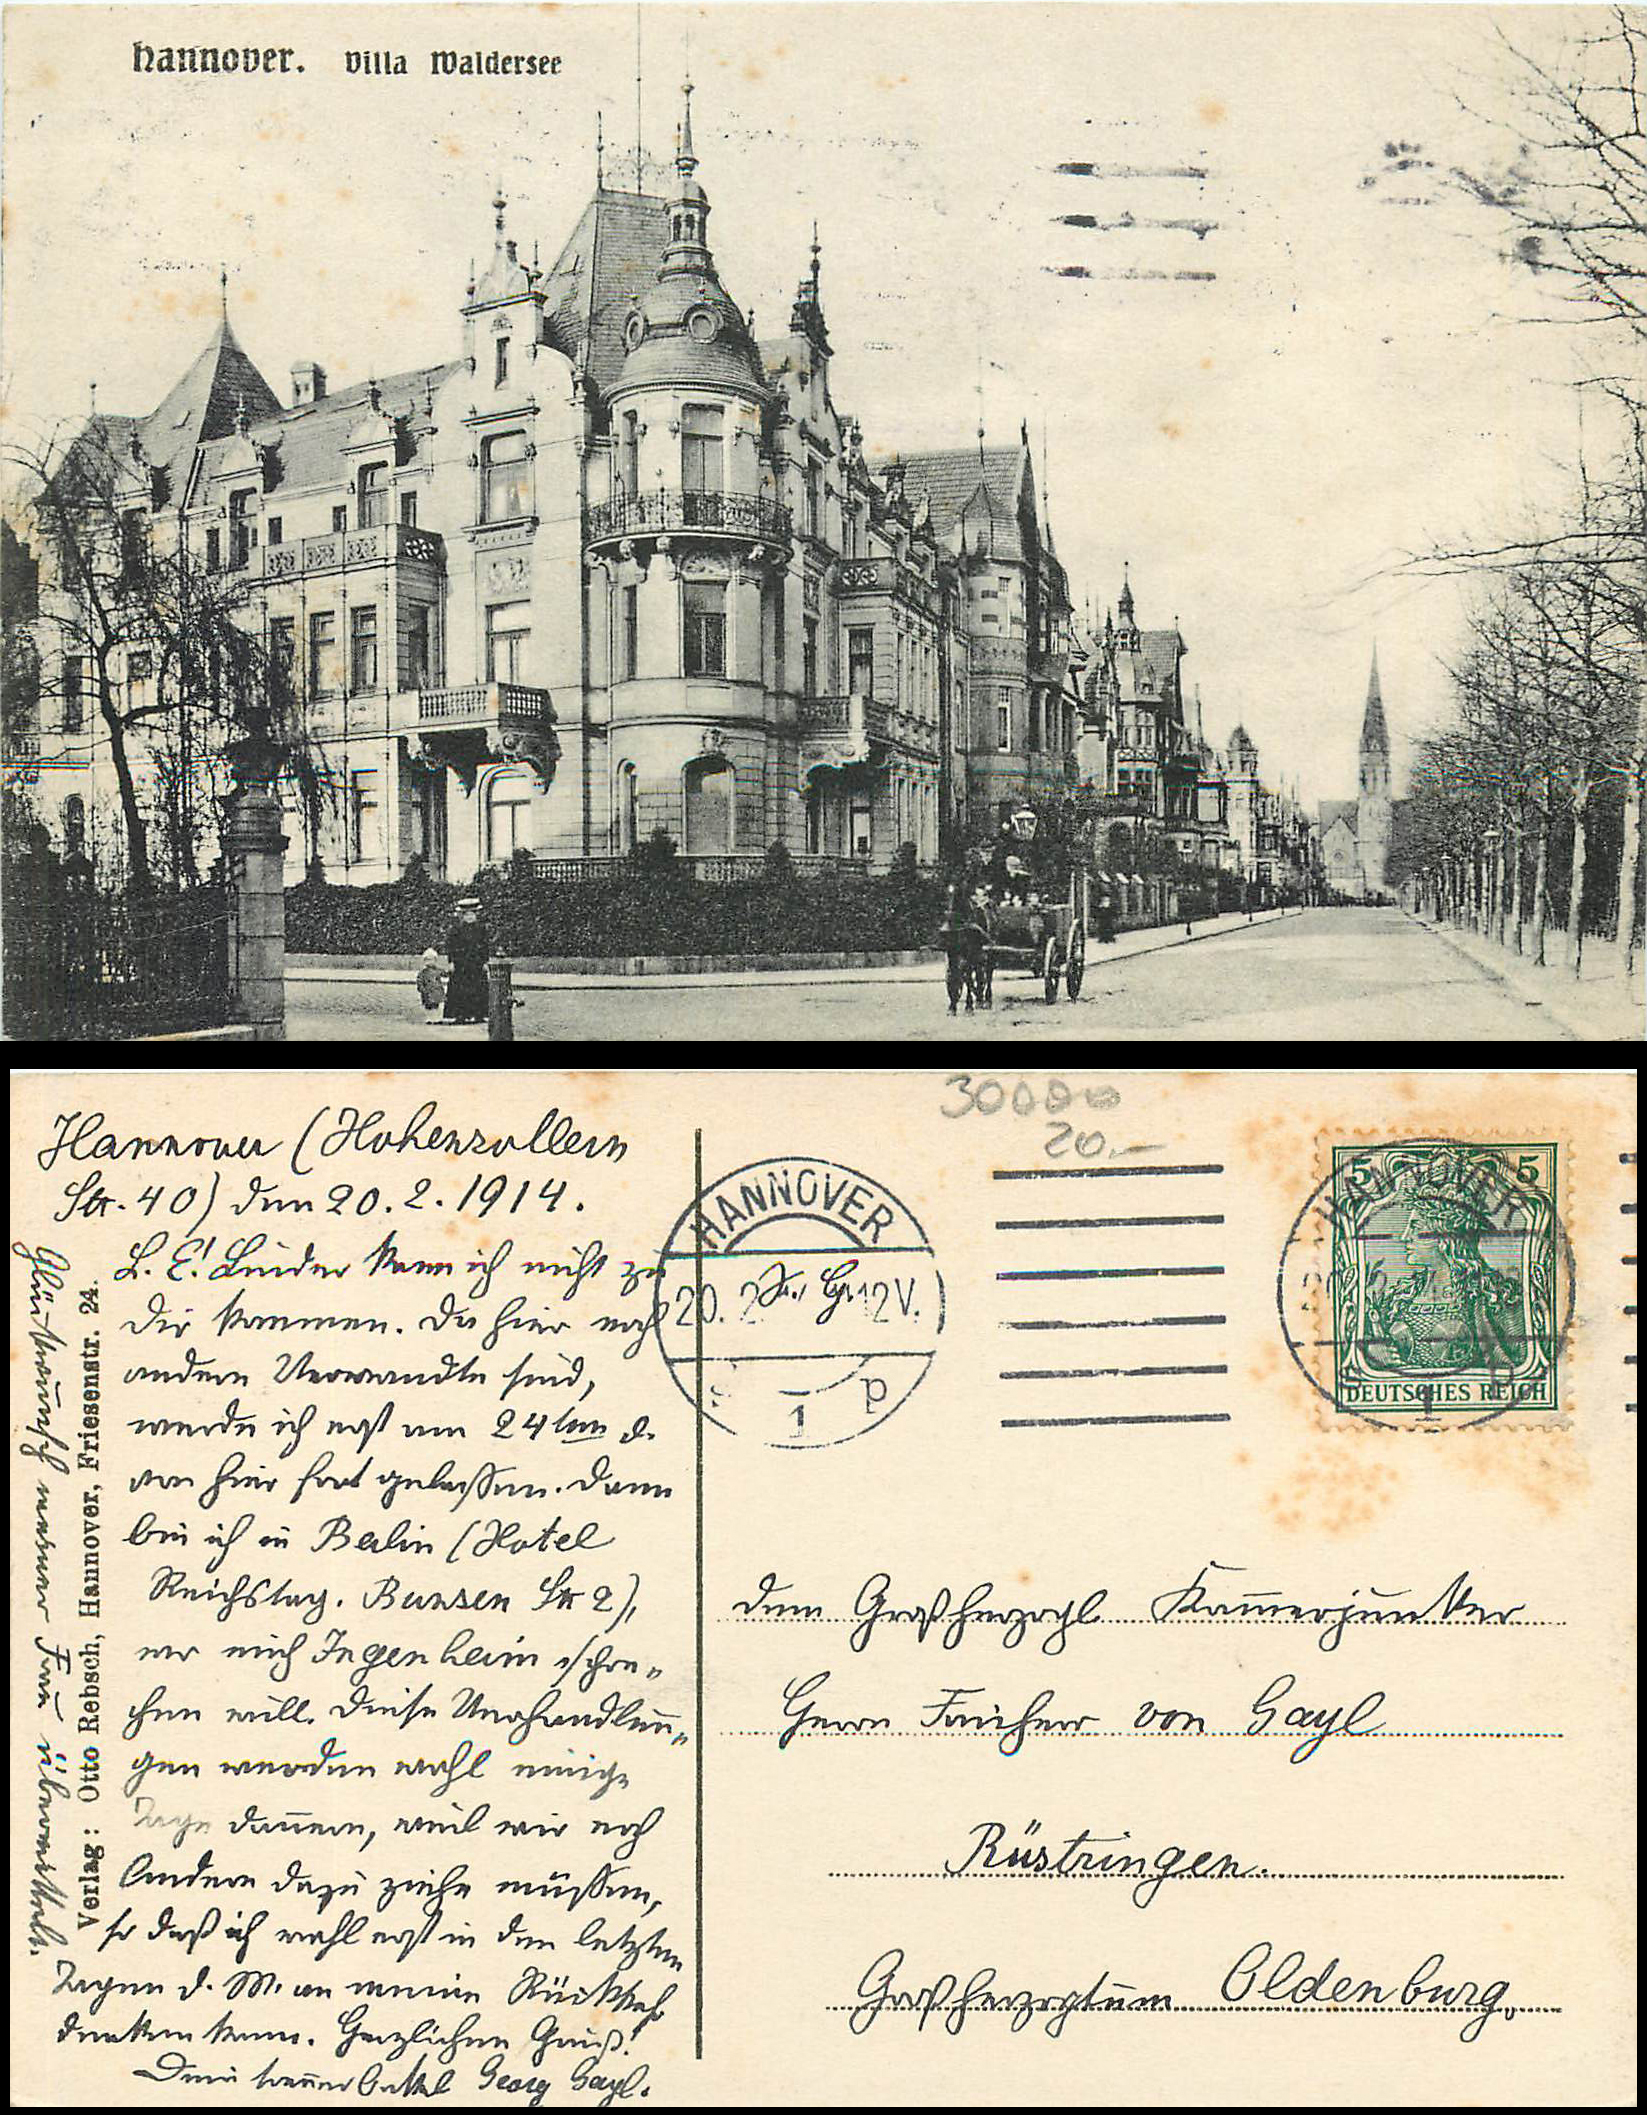 Hannover. Villa Waldersee
30000
20.-
Hannover (Hohenzollern
Str. 40) den 20.2.1914.
L. E.! Leider kann ich nicht zu
Dir kommen. Da hier noch
andere Verwandte sind,
werde ich erst am 24ten d.
von hier fort gelassen. Dann
bin ich in Berlin (Hotel
Reichstag. Bunsen Str 2),
wo mich Ingenheim spre-
chen will. Diese Verhandlun-
gen werden wohl einige
Tage dauern, weil wir noch
Andere dazu ziehe müssen,
so daß ich wohl erst in den letzten
Tagen d. M. an meine Rückkehr
denken kann. Herzlichen Gruß!
Dein treuer Onkel Georg Gayl.
Glückwunsch meiner Frau übermittelt.
Verlag: Otto Rebsch, Hannover, Friesenstr. 24.
HANNOVER
20. 2. 12V.
1 p
Fr. Gr.
HANNOVER
1
5 5
DEUTSCHES REICH
dem Großherzogl. Kammerjunker
Herrn Freiherr von Gayl
Rüstringen.
Großherzogtum Oldenburg.